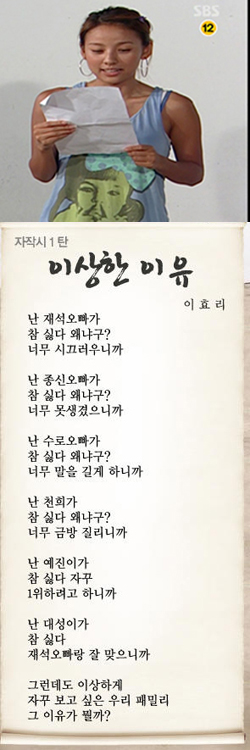 SBS
12
자작시 1 탄
이상한 이유
이 효 리
난 재석오빠가
참 싫다 왜냐구?
너무 시끄러우니까
난 종신오빠가
참 싫다 왜냐구?
너무 못생겼으니까
난 수로오빠가
참 싫다 왜냐구?
너무 말을 길게 하니까
난 천희가
참 싫다 왜냐구?
너무 금방 질리니까
난 예진이가
참 싫다 자꾸
1위하려고 하니까
난 대성이가
참 싫다
재석오빠랑 잘 맞으니까
그런데도 이상하게
자꾸 보고 싶은 우리 패밀리
그 이유가 뭘까?